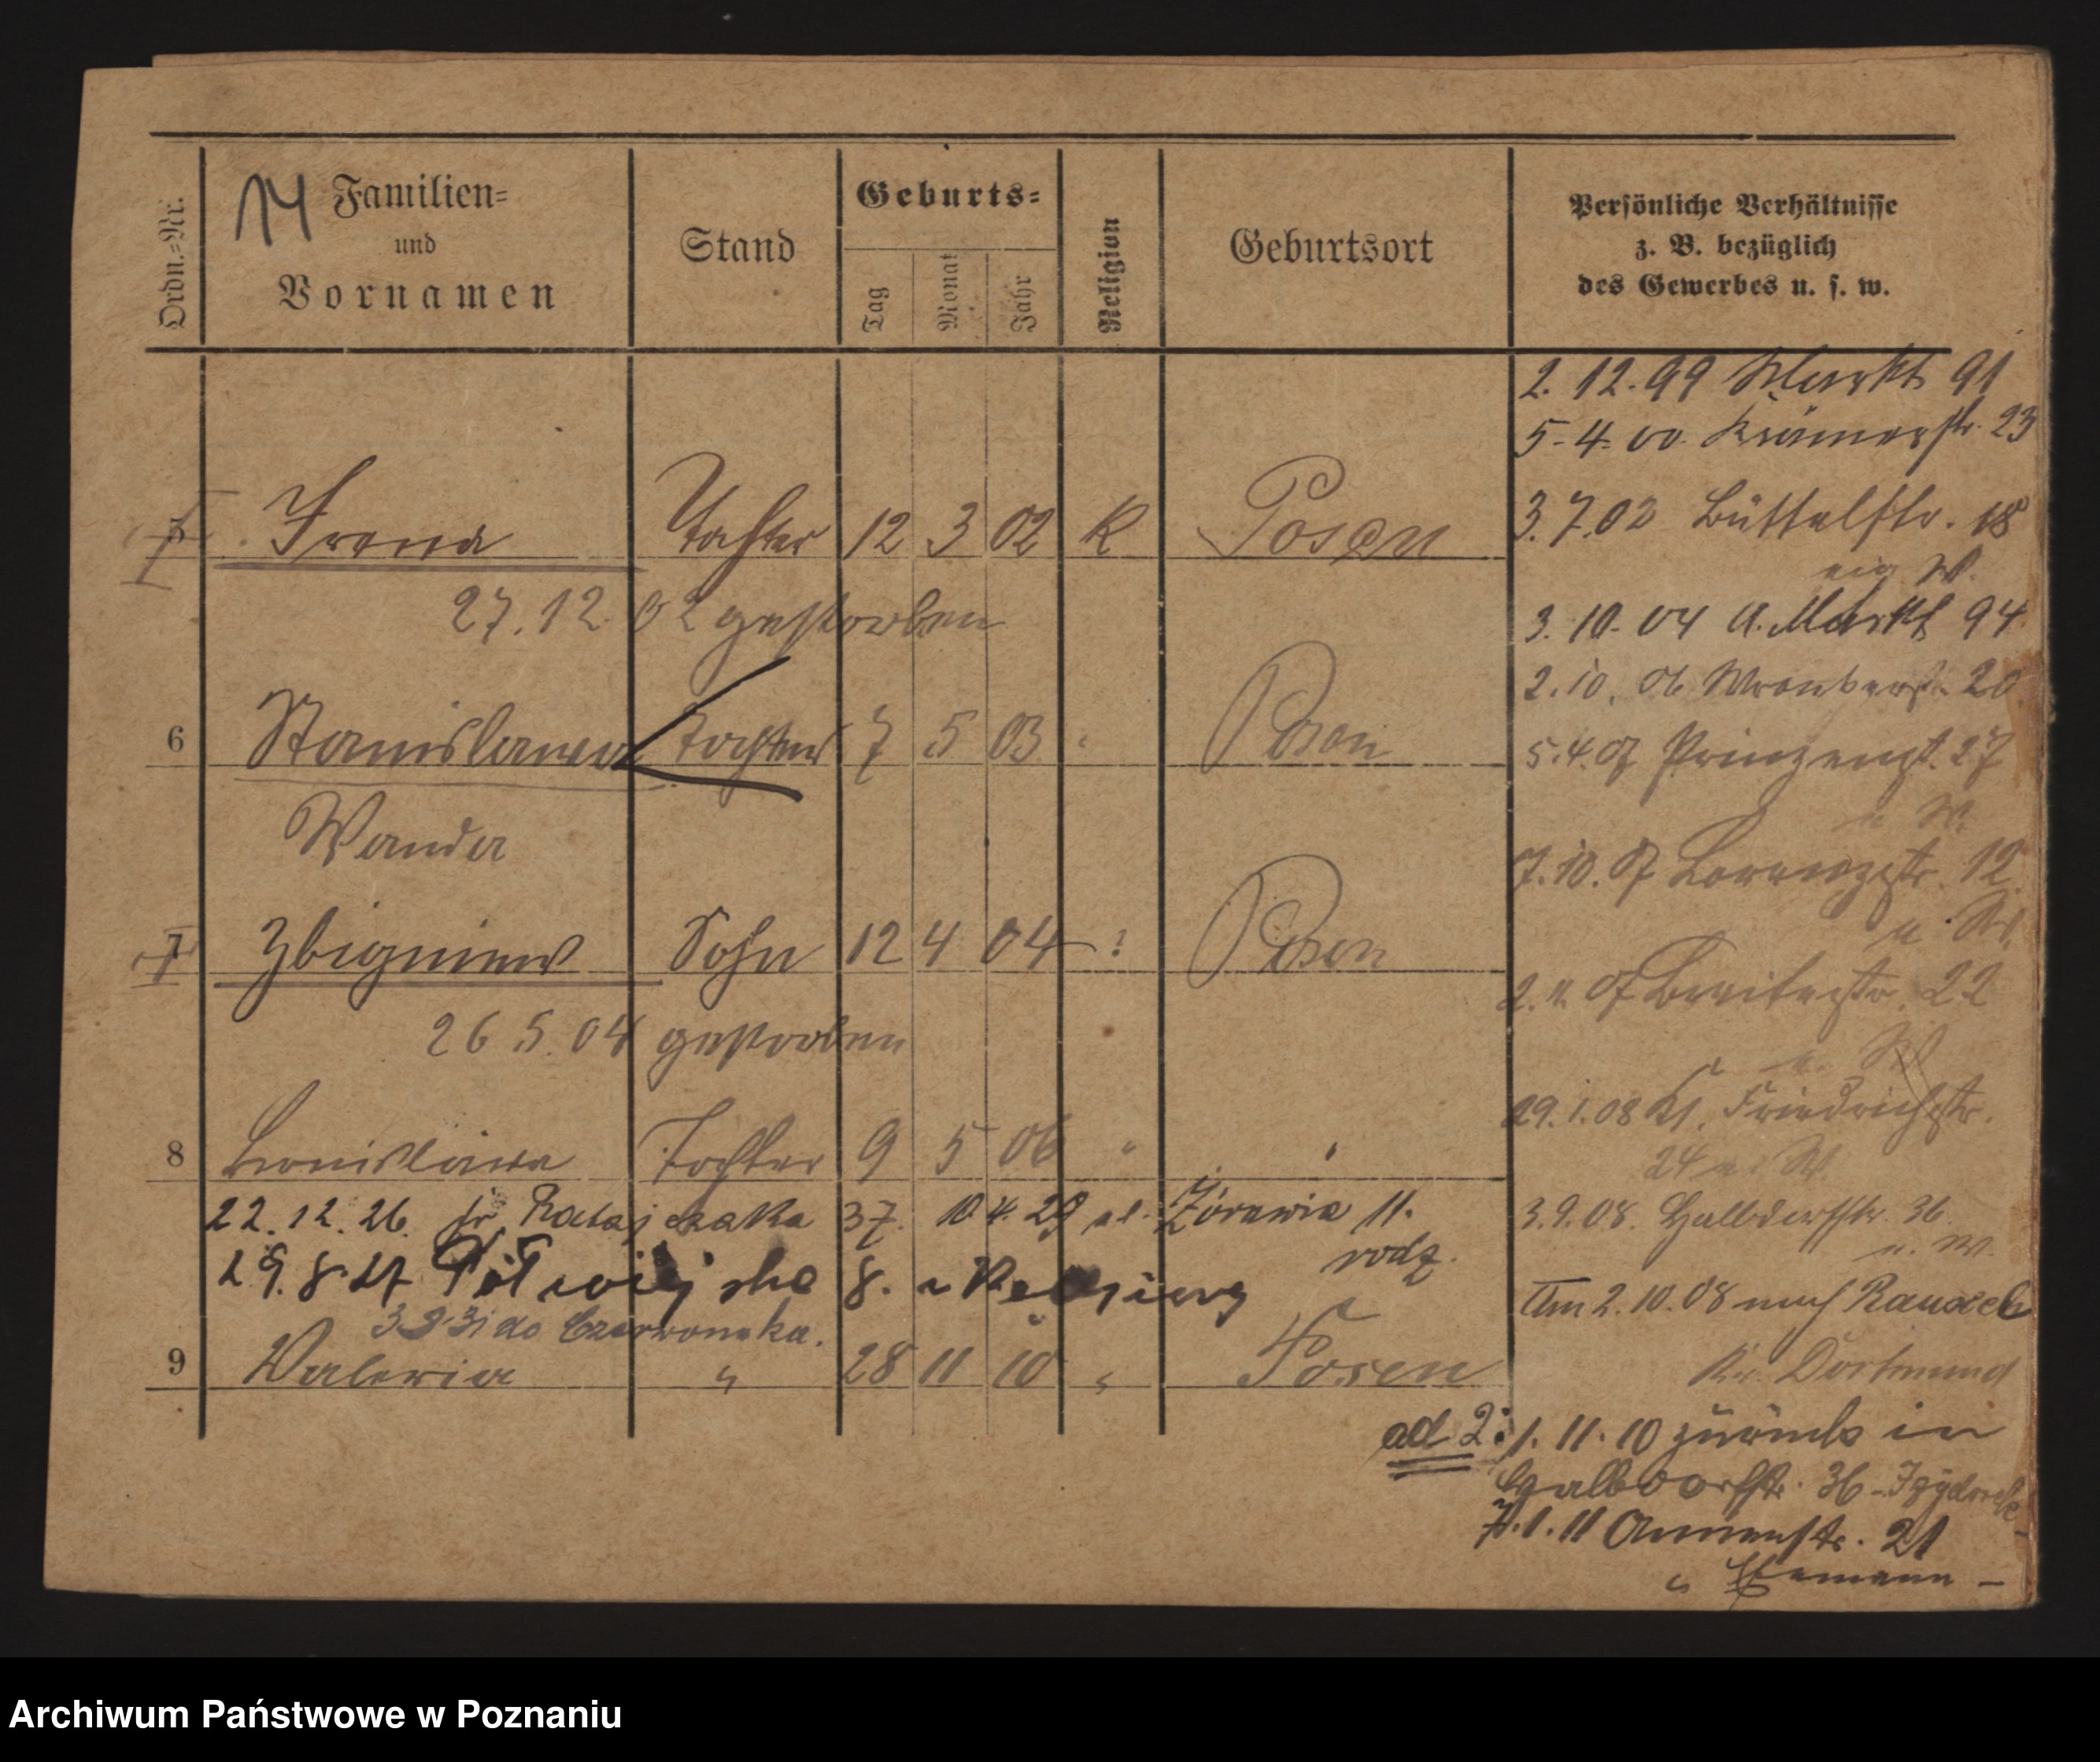 14
Ordn.=Nr.
Familien=
und
Vornamen
Stand
Geburts=
Tag
Monat
Jahr
Religion
Geburtsort
Persönliche Verhältnisse
z. B. bezüglich
des Gewerbes u. s. w.
2. 12. 99 Markt 91
5. 4. 00. Krämerstr. 23
5 Irena Tochter 12 3 02 K Posen
3. 7. 02 Büttelstr. 18
W.
27. 12. 02 gestorben
3. 10. 04 A. Markt 94
2. 10. 06 20
6 Stanislawa Tochter 7 5 03 Posen
5. 4. 07 27
Wanda
W.
7. 10. 07 12
7 Zbigniew Sohn 12 4 04 Posen
07 Breitestr. 22
26 5. 04 gestorben
29. 1. 08 Kl. Friedrichstr.
24 W.
8 Bronislawa Tochter 9 5 06 "
22. 12. 26. fr. Ratajczaka 37. 10 4. 29 ul. Żórawia 11.
rodz.
3. 9. 08. Halbdorfstr. 36
u. W.
29. 8. 27 8.
Am 2. 10. 08 nach Rauxel
do Czerwonaka.
9 Waleria " 28 11 10 " Posen
Kr. Dortmund
ad 2: 1. 11. 10 zurück in
Halbdorfstr. 36
7. 1. 11 Annenstr. 21
Archiwum Państwowe w Poznaniu